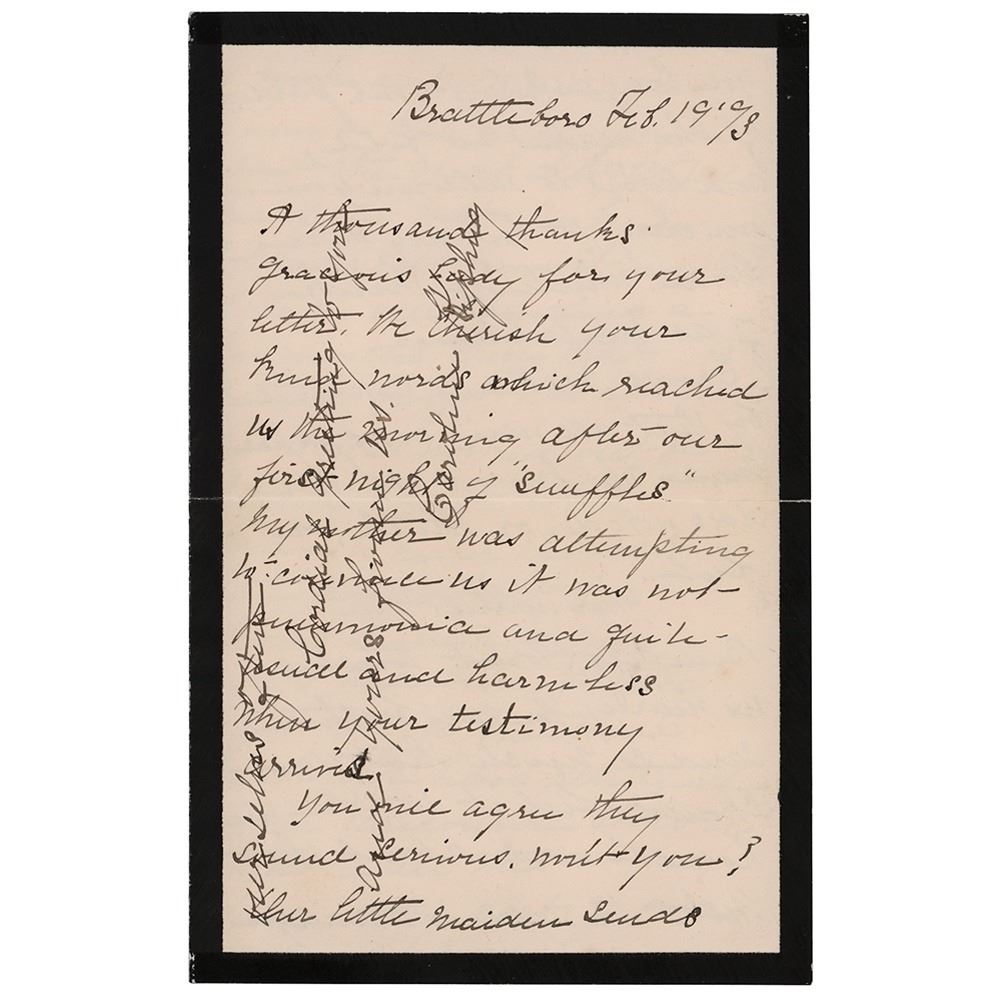 Brattleboro Feb. 19 '93
A thousand thanks
gracious Lady for your
letter. We cherish your
kind words which reached
us the morning after our
first night of "snuffles"
My mother was attempting
to convince us it was not
pneumonia and quite
usual and harmless
when your testimony
arrived.
You will agree they
sound serious, won't you?
Our little maiden sends
ourselves
Cordial greeting to you
and yours from us.
Caroline Kipling